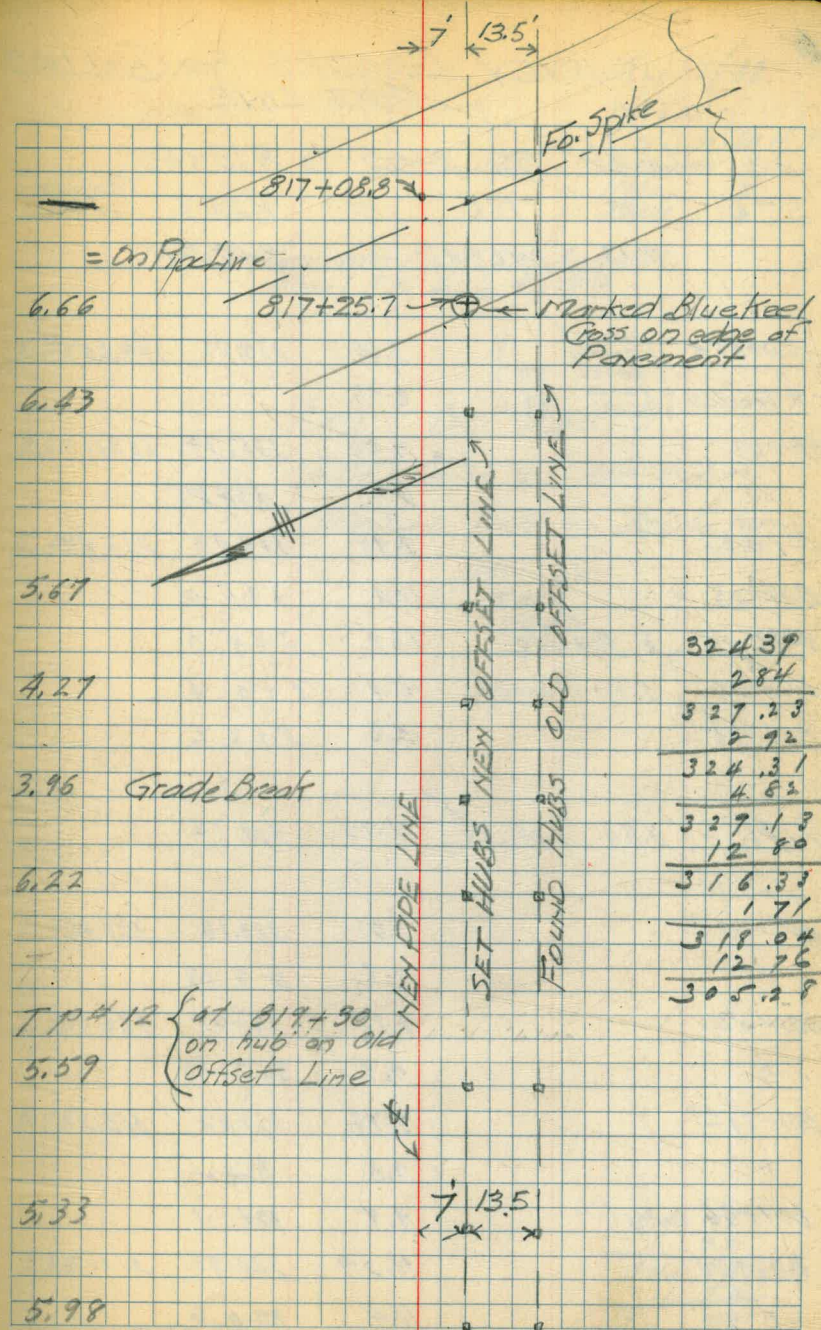 7' 13.5'
Fo. Spike
817+08.8
= On Pipe Line
6.66 817+25.7 Marked Blue Keel
Cross on edge of
Pavement
6.43
5.67
4.27
3.96 Grade Break
6.22
TP#12 at 819+50
on hub on Old
5.59 Offset Line
5.33
5.98
NEW PIPE LINE
SET HUBS NEW OFFSET LINE
FOUND HUBS OLD OFFSET LINE
7' 13.5
324.39
2 84
327.23
2 92
324.31
4 82
329.13
12 80
316.33
1 71
318.04
12 76
305.28